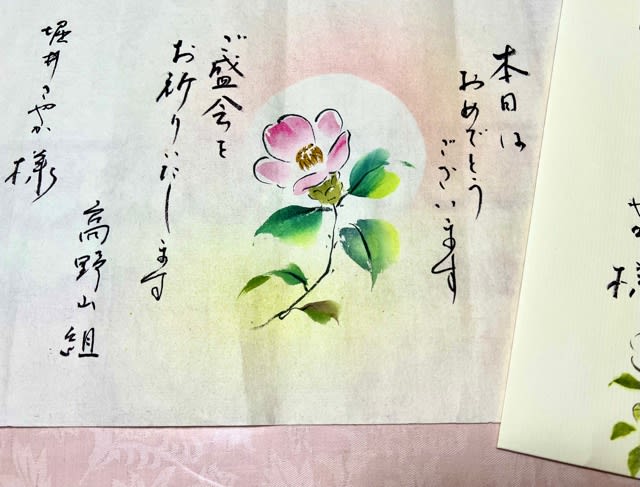 本日は
おめでとう
ございます
ご盛会を
お祈りいたします
堀井さやか様
高野山組
様